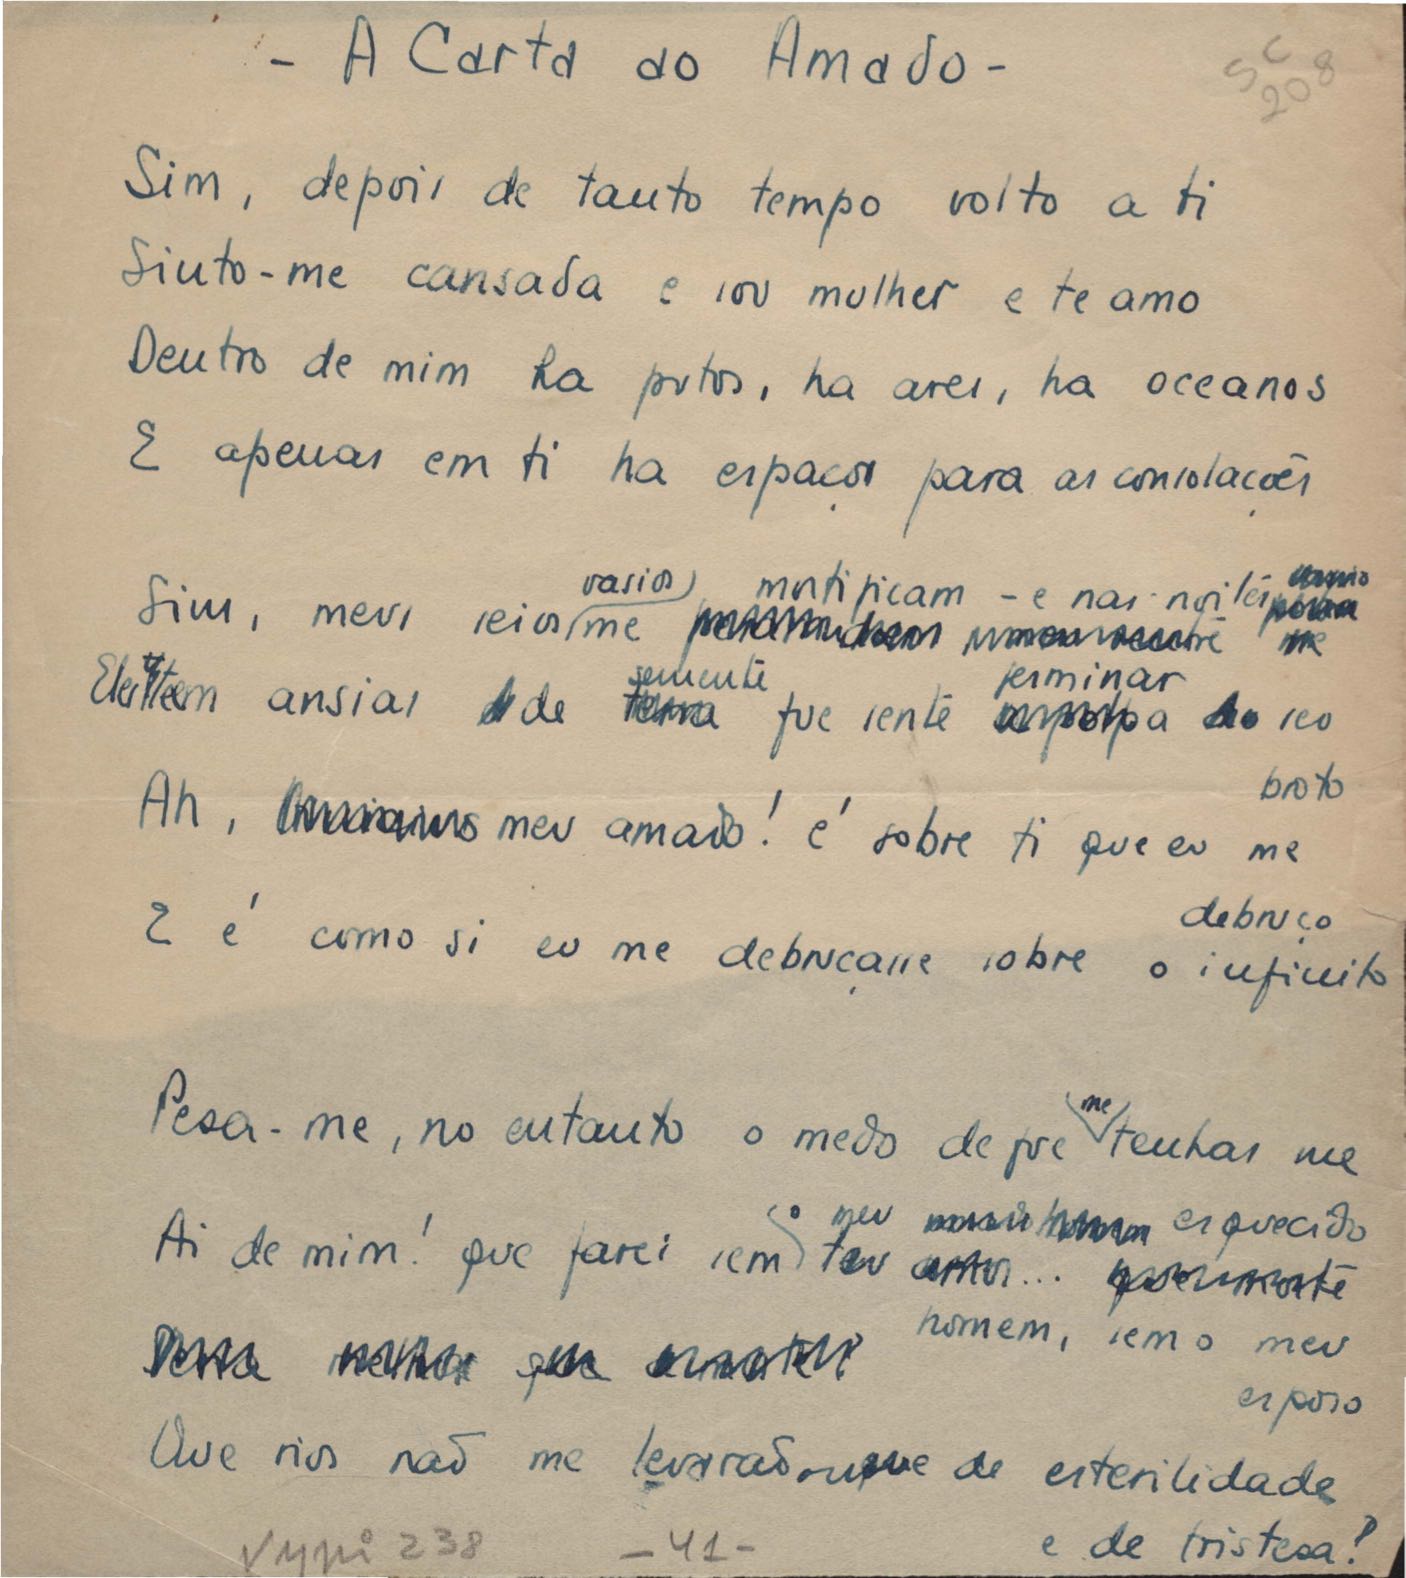 - A Carta ao Amado -
SC
208
Sim, depois de tanto tempo volto a ti
Sinto-me cansada e sou mulher e te amo
Dentro de mim ha putos, ha ares, ha oceanos
E apenas em ti ha espaços para as consolações
Sim, meus seios vasios me mortificam - e nas noites
Eles teem ansias de semente que sente germinar seu
broto
Ah, meu amado! é sobre ti que eu me
debruço
E é como si eu me debruçasse sobre o infinito
Pesa-me, no entanto o medo de que me tenhas me
esquecido
Ai de mim! que farei sem o meu
homem, sem o meu
esposo
Que rios não me levarão de esterilidade
e de tristesa?
238 - 41 -